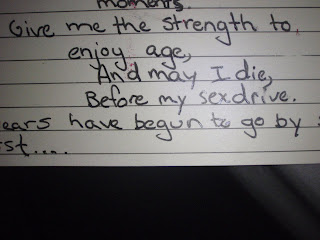 moments,
Give me the strength to,
enjoy age,
And may I die,
Before my sexdrive.
ears have begun to go by
st....